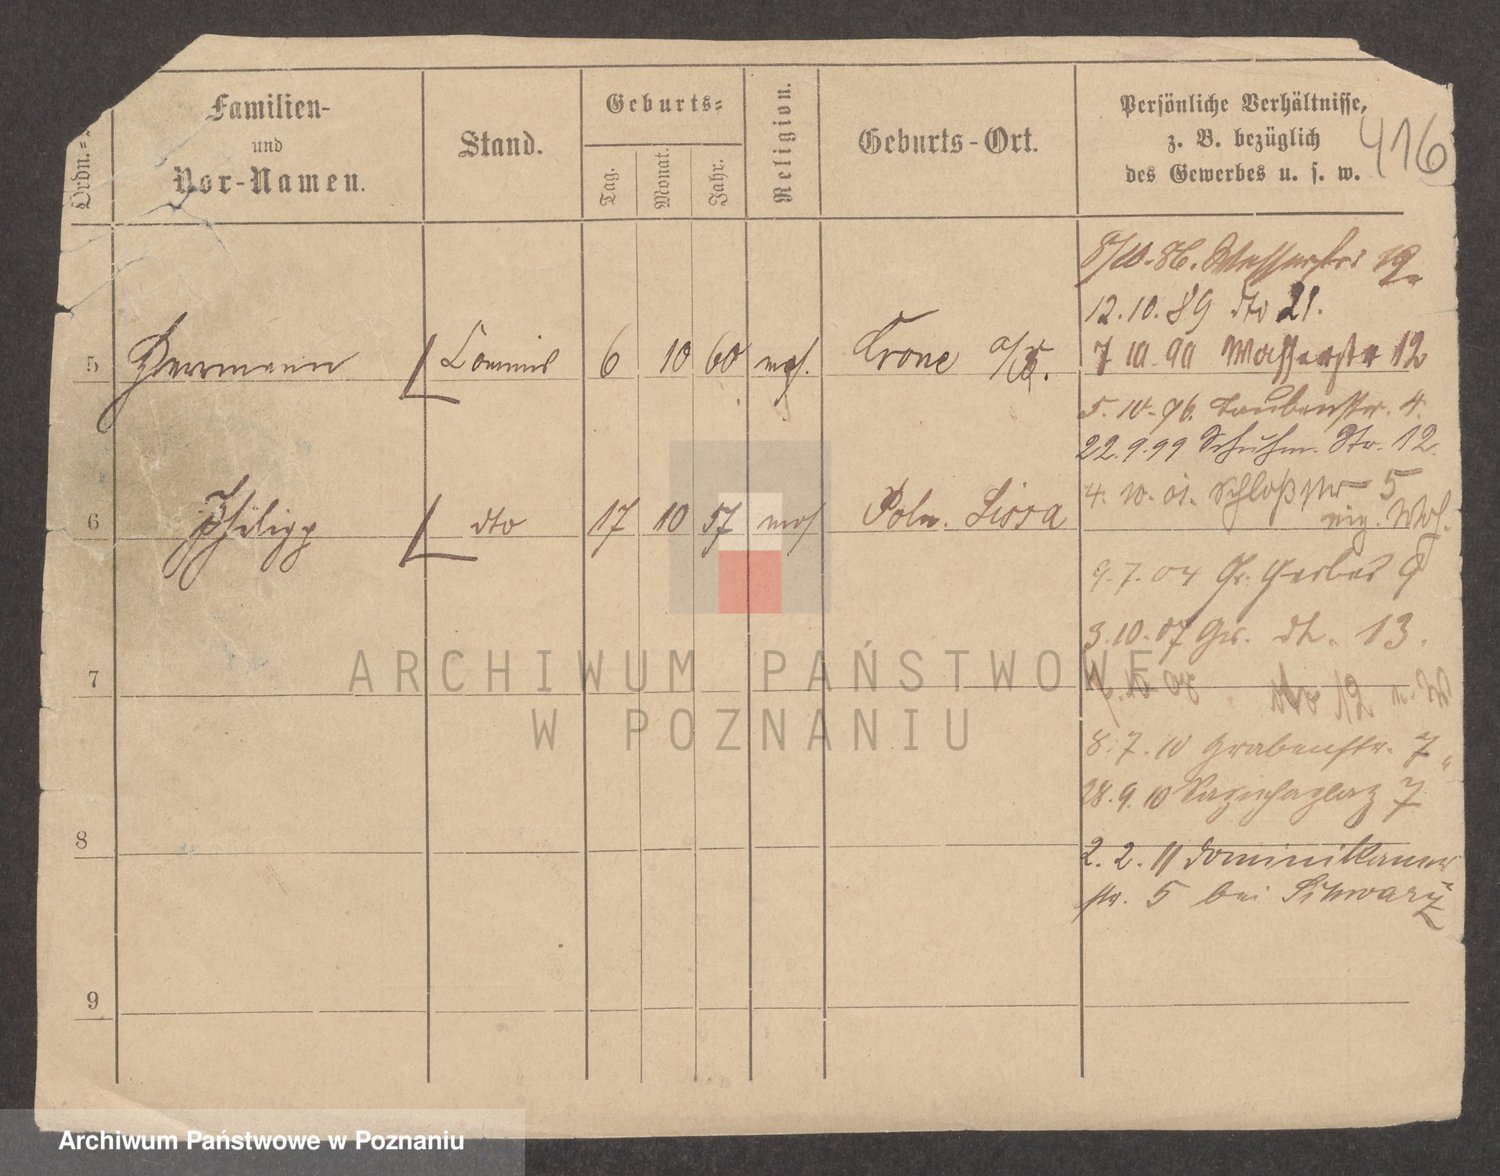 Ordn.-
Familien-
und
Vor-Namen.
Stand.
Geburts-
Tag.
Monat.
Jahr.
Religion.
Geburts-Ort.
Persönliche Verhältnisse,
z. B. bezüglich
des Gewerbes u. s. w.
416
12.10.89 dto 21.
5 Herrmann Commis 6 10 60 mos. Crone a/B.
7 10.90 Wasserstr 12
5.10.96. Taubenstr. 4.
22.9.99 Schuhm. Str. 12.
6 Philipp dto 17 10 57 mos Poln. Lissa
4.10.01. Schloßstr 5
9.7.04 Gr. Gerber
3.10.07 Gr. dto. 13.
7
dto 12
8.7.10 Grabenstr. 7
28.9.10 Sapiehaplatz 7
8
2.2.11 Dominikaner
str. 5 bei Schwarz
9
ARCHIWUM PAŃSTWOWE
W POZNANIU
Archiwum Państwowe w Poznaniu